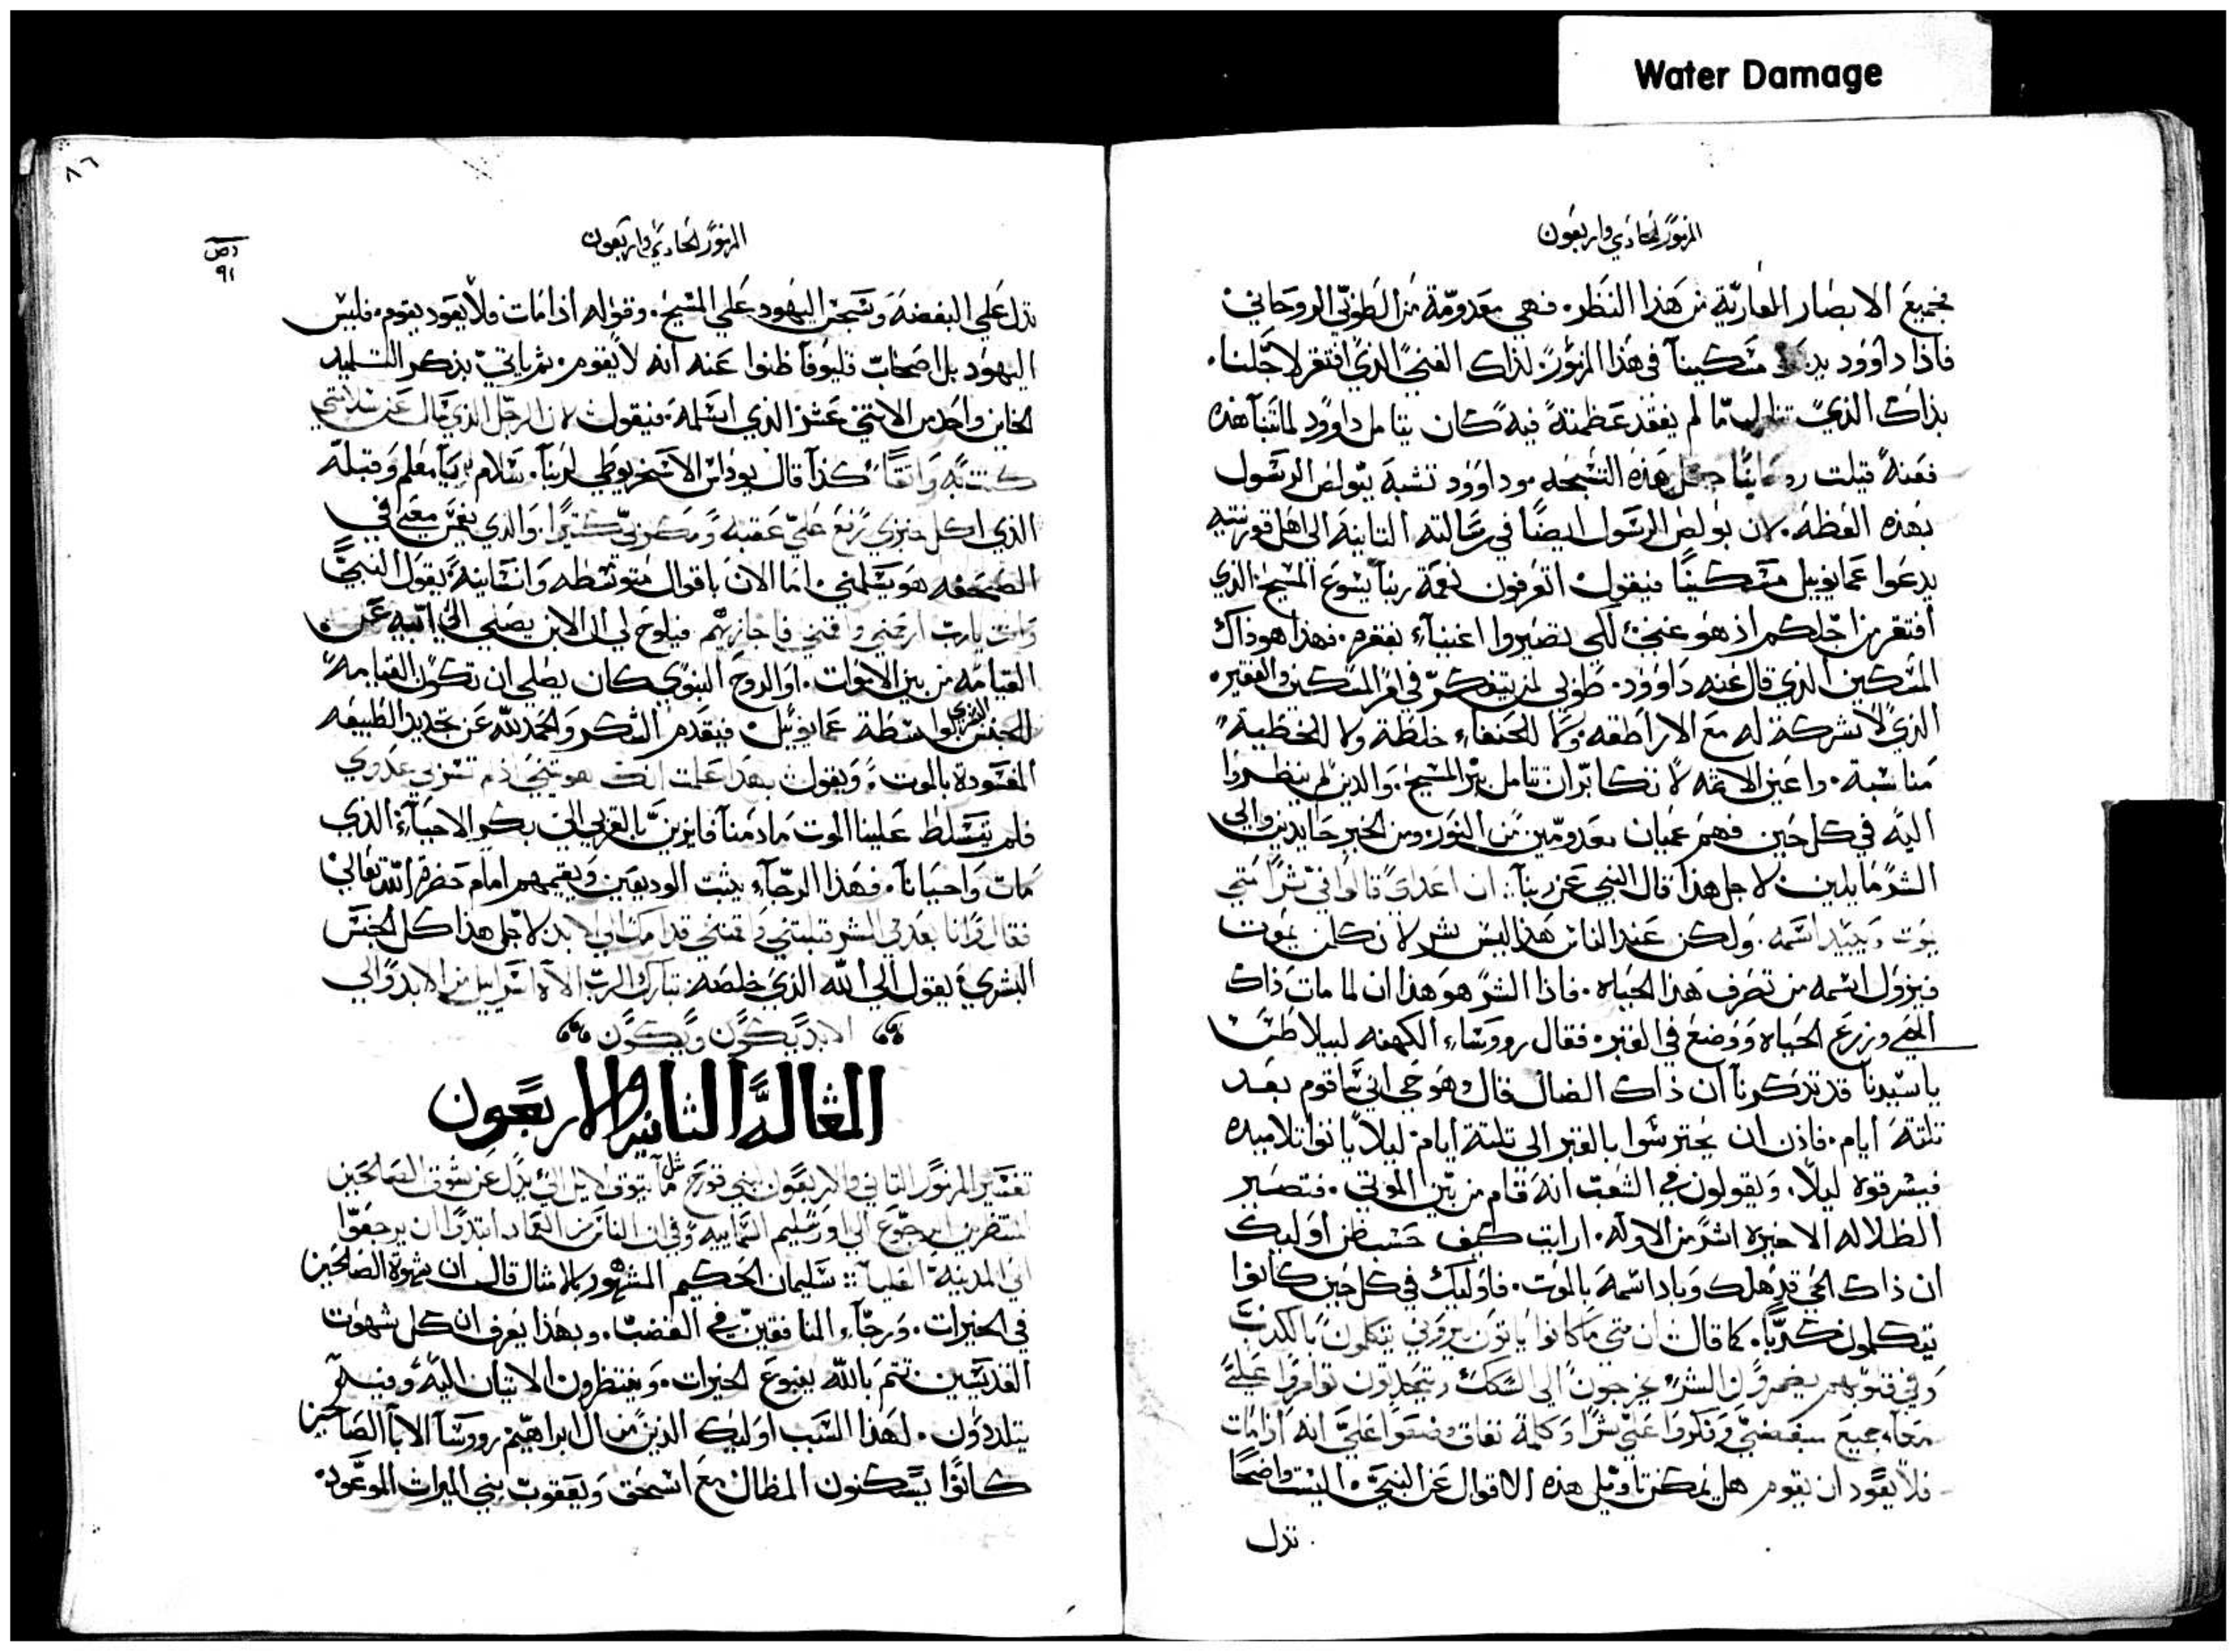 Water Damage
المزمور الحادي واربعون
فجميع الابصار العاريّة من هذا النظر. فهي معدومّة من الطوبّي الروحاني
فاذا داوود مسكيناً في هذا المزمور لذاك الغني الذي افتقر لاجّلنا.
بذاك الذي لم يفقد عظمته فيه كان يتامل داوود لما تنبا هذه
فعنه قيلت هذه التسبحه داوود تشبه ببولص الرسول
بهذه العظه. لان بولص الرسول ايضاً في رسالته الثانيه الي اهل قورنتيه
يدعوا عمانوييل مسكيناً فيقول اتعرفون نعمة ربنا يسوع المسيح الذي
افتقر من اجّلكم اذ هو غني لكي تصيروا اغنياء بفقره. فهذا هو ذاك
المسكين الذي قال عنه داوود. طوبي لمن يتفكرّ في امر المسكين والفقير.
الذي لا شركة له مع الاراطقه ولا للحنفاء خلطة ولا للخطية
مناسبة. واعين الاثمه لا تكابر ان تتامل سر المسيح. والذين لم ينظروا
اليه في كل حين فهم عميان معدومّين من النور ومن الخير حايدين والي
الشر مايلين لاجل هذا قال النبي عن ربنا: ان اعداي قالوا فيّ شراً متي
يموت ويبيد اسمه. ولكن عند الناس هذا ليس بشر لان كلمن يموت
فيزول اسمه من تصرف هذا الحياه. فاذا الشر هو هذا ان لما مات ذاك
الحي وزرع الحياه ووضع في القبر. فقال رووسّاء الكهنه لبيلاطس
ياسيدنا قد تذكرنا ان ذاك الضال قال وهو حي اني ساقوم بعد
تلتة ايام. فاذن ان يحترسوا بالقبر الي تلتة ايام ليلاً ياتوا تلاميده
فيسرقوه ليلاً. ويقولون في الشعب انه قام من بين الموتي. فتصير
الظلاله الاخيره اشر من الاوله. ارايت كيف حسب ظن اوليك
ان ذاك الحي قد هلك وباد اسمه بالموت. فاوليك في كل حين كانوا
يتكلمون كذباً. كما قال ان متي ما كانوا ياتون يروني يتكلمون بالكذب
وفي قلوبهم يضمرون الشر يخرجون الي السكك ويتحدتون توامروا عليّ
معاً. جميع مبغضيّ وفكروا عليّ شراً وكلمة نفاق وضعوا عليّ انه اذا مات
فلا يعود ان يقوم هل يمكن تاويل هذه الاقوال عن النبي. اليست واضحاً
تدل
٨٦
المزمور الحادي واربعون
٩١
تدل علي البغضه وتسجس اليهود علي المسيح. وقوله اذا مات فلا يعود يقوم. فليس
اليهود بل اصحاب قليوفا ظنوا عنه انه لا يقوم. ثم ياتي بذكر التلميد
الخاين واحد من الاثني عشر الذي اسلمه. فيقول لان الرجل الذي سال عن سلامتي
كنت به واثقاً كذا قال يوداس الاسخريوطي لربنا. سلام يا معلم وقبله
الذي اكل خبزي رفع عليّ عقبه ومكر بي كثيراً. والذي يغمس معي في
الصحفه هو يسلمني. اما الان باقوال متوسطه وانسانيه يقول النبيّ
وانت يارب ارحمني واقمني فاجازيهم فيلوح لي ان الابن يصلي الي ابيه عن
القيامه من بين الاموات. او الروح النبوي كان يصلي ان تكون القيامه
للجنس البشري بواسطة عمانوييل. فيقدم الشكر والحمد لله عن تجديد الطبيعه
المفسودة بالموت. ويقول بهذا علمت انك هويتني اذ لم تسر بي عدوي
فلم يتسلط علينا الموت ما دمنا فايزين بالقربي الي بكر الاحياء الذي
مات واحيانا. فهذا الرجّاء يثبت الوديعين ويقيمهم امام حضرة الله تعالي
فقال وانا بعدم الشر قبلتني واقمتني قدامك الي الابد لاجّل هذا كل الجنس
البشري يقول الي الله الذي خلصه تبارك الرب الاه اسراييل من الابد والي
الابد يكون ويكون
المقالة الثانيه والاربعون
تفسير المزمور الثاني والاربعون لبني قورح مثل ما يتوق الايل الي يدل عن شوق الصالحين
المنتظرين الرجوع الي اورشليم السمايية وفي ان الناس من العماد ابتدوا ان يرجعوا
الي المدينة العليا: سليمان الحكيم المشهور بالامثال قال ان شهوة الصالحين
في الخيرات. ورجاء المنافقين في الغضب. وبهذا يعرف ان كل شهوت
القديسين تتم بالله ينبوع الخيرات. وينتظرون الاتيان اليه وفيه
يتلددون. لهذا السبب اوليك الذين من ال ابراهيم رووسآ الابآ الصالحين
كانوا يسكنون المظال مع اسحق ويعقوب بني الميراث الموعود